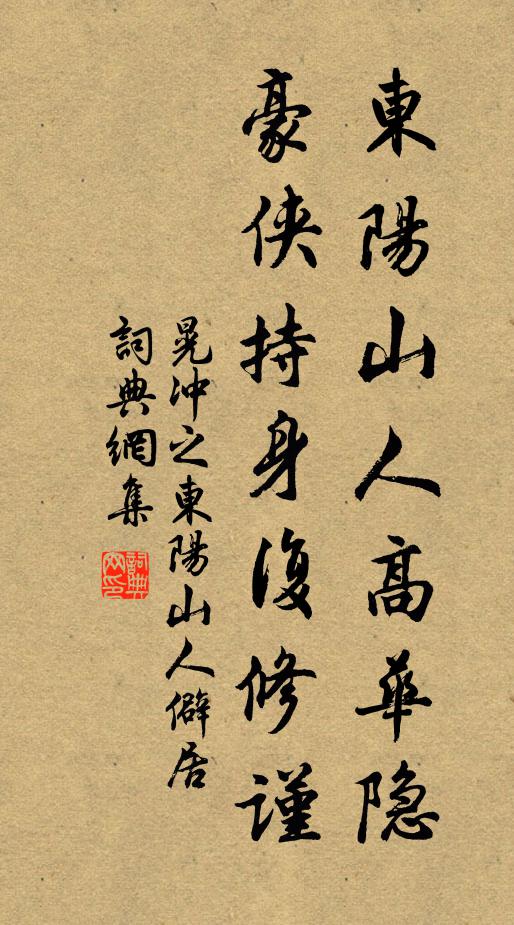 東陽山人高華隐
豪侠持身復修謹
晃冲之東陽山人僻居
詞典網集
詞典网印